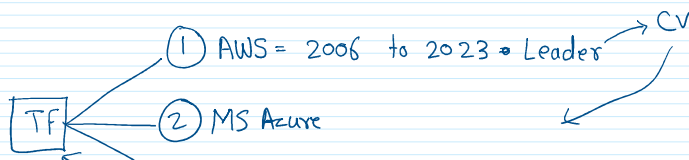 CV
① AWS = 2006 to 2023 • Leader
TF
② MS Azure